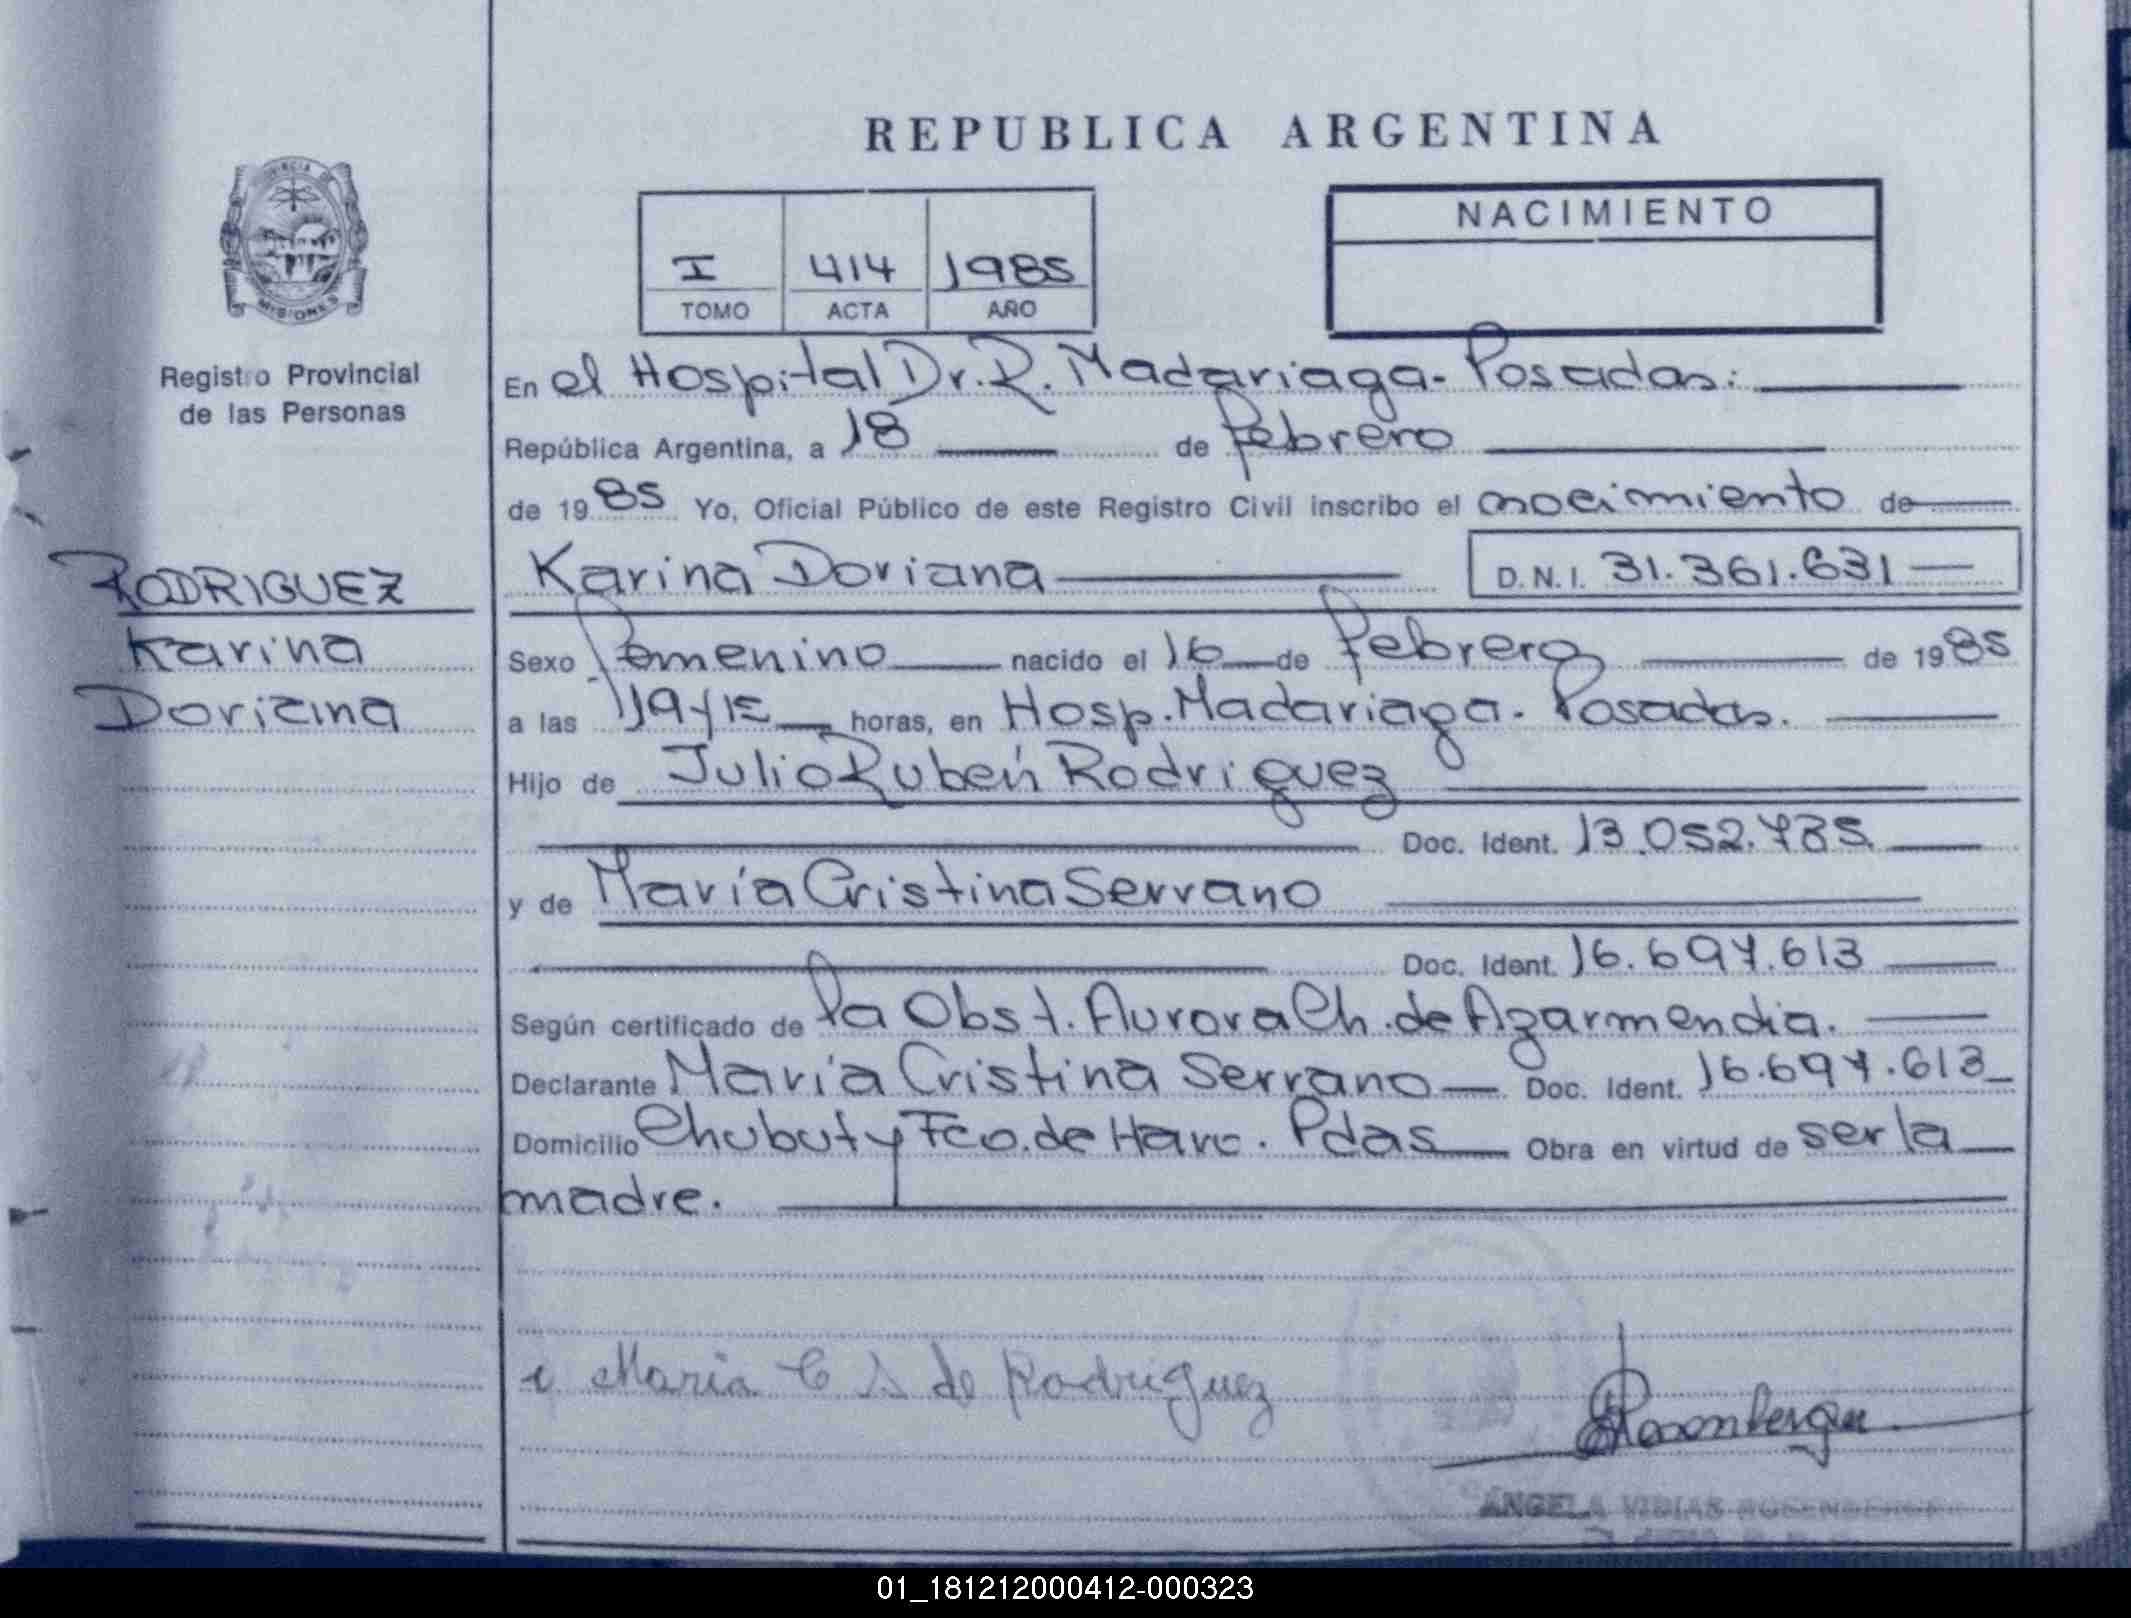 REPUBLICA ARGENTINA
NACIMIENTO
I 414 1985
TOMO ACTA AÑO
MISIONES
Registro Provincial
de las Personas
En el Hospital Dr. R. Madariaga - Posadas.
República Argentina, a 18 de Febrero
de 1985 Yo, Oficial Público de este Registro Civil inscribo el nacimiento de
RODRIGUEZ
Karina Doriana D.N.I. 31.361.631
Karina
Sexo Femenino nacido el 16 de Febrero de 1985
Doriana
a las horas, en Hosp. Madariaga - Posadas.
Hijo de Julio Rubén Rodriguez
Doc. Ident. 13.052.785
y de María Cristina Serrano
Doc. Ident. 16.697.613
Según certificado de la Obst. Aurora Ch. de Azarmendia.
Declarante María Cristina Serrano Doc. Ident. 16.697.613
Domicilio Chubut y Fco. de Haro. Pdas Obra en virtud de ser la
madre.
María C S de Rodriguez
Rosenberger
ANGELA
01_181212000412-000323